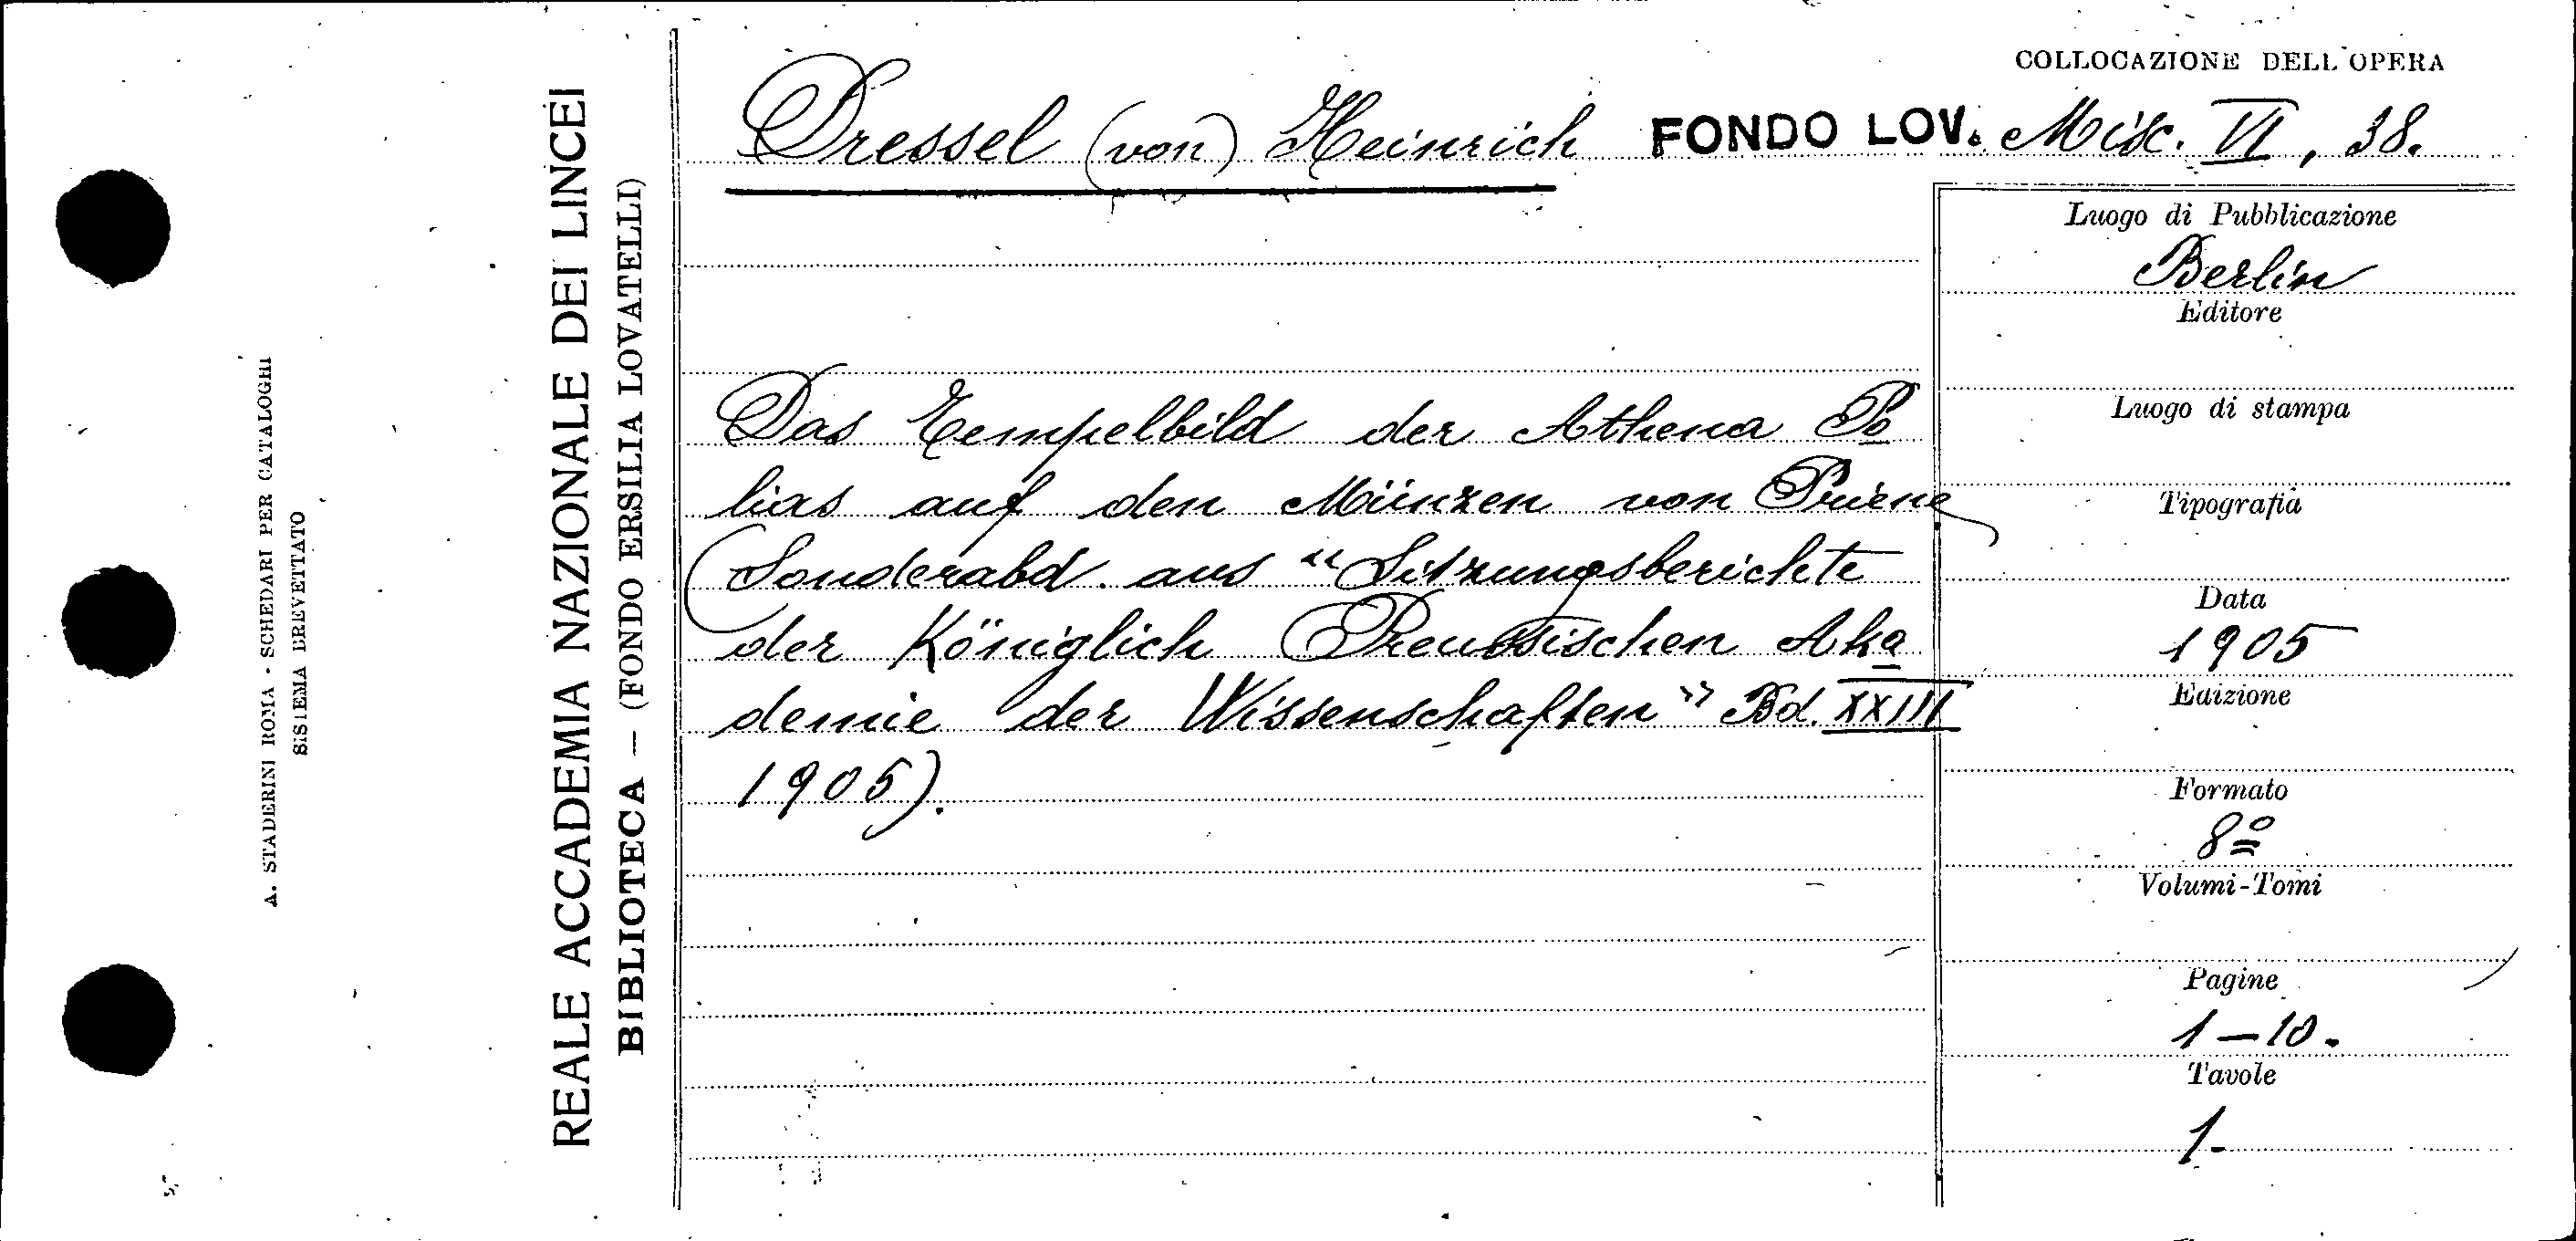 A. STADERINI ROMA - SCHEDARI PER CATALOGHI
SISTEMA BREVETTATO
REALE ACCADEMIA NAZIONALE DEI LINCEI
BIBLIOTECA — (FONDO ERSILIA LOVATELLI)
COLLOCAZIONE DELL'OPERA
Dressel (von) Heinrich FONDO LOV. Misc. VI, 38.
Das Tempelbild der Athena Po
lias auf den Münzen von Priene
(Sonderabd. aus "Sitzungsberichte
der Königlich Preussischen Aka
demie der Wissenschaften" Bd. XXIII
1905).
Luogo di Pubblicazione
Berlin
Editore
Luogo di stampa
Tipografia
Data
1905
Edizione
Formato
8º
Volumi-Tomi
Pagine
1-10.
Tavole
1-